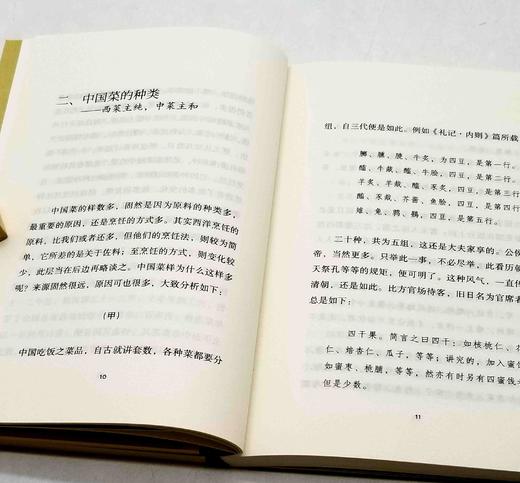 二、中国菜的种类
——西菜主纯，中菜主和
中国菜的样数多，固然是因为原料的种类多，
最重要的原因，还是烹饪的方式多。其实西洋烹饪的
原料，比我们或者还多，但他们的烹饪法，则较为简
单，它所差的是关于佐料；至烹饪的方式，则变化较
少，此层当在后边再略谈之。中国菜样为什么这样多
呢？来源固然很远，原因可也很多，大致分析如下：
（甲）
中国吃饭之菜品，自古就讲套数，各种菜都要分
10
组，自三代便是如此。例如《礼记·内则》篇所载
膷、臐、膮、牛炙，为四豆，是第一行。
醢、牛胾、醢、牛脍，四豆，是第二行
羊炙、羊胾、醢、豕炙，四豆，是第三行
醢、豕胾、芥酱、鱼脍，四豆，是第四行
雉、兔、鹑、鷃，四豆，是第五行。
二十种，共为五组，这还是大夫家享的。公侯
帝，当然更多。只举此一事，不必尽举，此看历朝
天祭孔等等的规矩，便可明了。这种风气，一直传
清朝，还是如此。比方官场待客，旧日名为官席者
总是如下：
四干果。简言之曰四干：如核桃仁、花
仁、焙杏仁、瓜子，等等；讲究的，加入蜜饯
如蜜枣、桃脯，等等，然亦有时另有四蜜饯
但是少数。
11